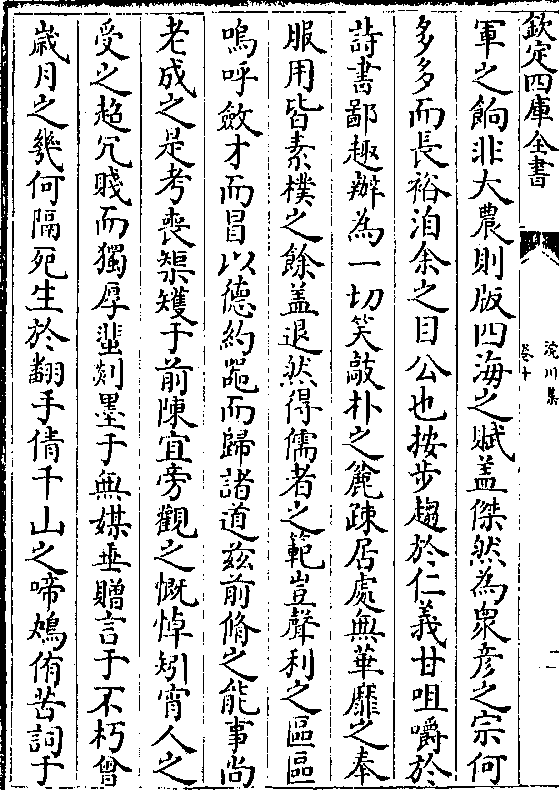 欽定四庫全書
浣川集
卷十
軍之餉非大農則版四海之賦盖傑然為衆彦之宗何
多多而長裕洎余之目公也按步趨於仁義甘咀嚼於
詩書鄙趣辦為一切笑敲朴之麄疎居處無華靡之奉
服用皆素樸之餘盖退然得儒者之範豈聲利之區區
嗚呼斂才而冒以德約器而歸諸道兹前脩之能事尚
老成之是考喪榘矱于前陳宜旁觀之慨悼矧宵人之
受之超冗賤而獨厚蜚剡墨于無媒垂贈言于不朽曾
歲月之幾何隔死生於翻手倩千山之啼鴂侑苦詞于